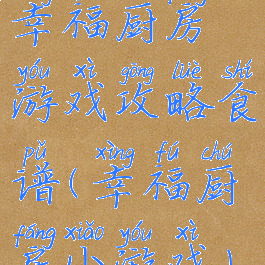 幸福厨房
yóu xì gōng lüè shí
游戏攻略食
pǔ xìng fú chú
谱(幸福厨
fáng xiǎo yóu xì
房小游戏)